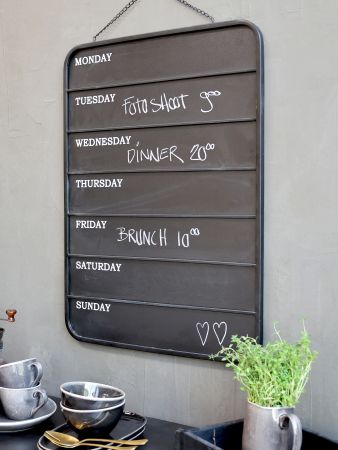 MONDAY
TUESDAY FOTOSHOOT 9⁰⁰
WEDNESDAY
DINNER 20⁰⁰
THURSDAY
FRIDAY
BRUNCH 10⁰⁰
SATURDAY
SUNDAY